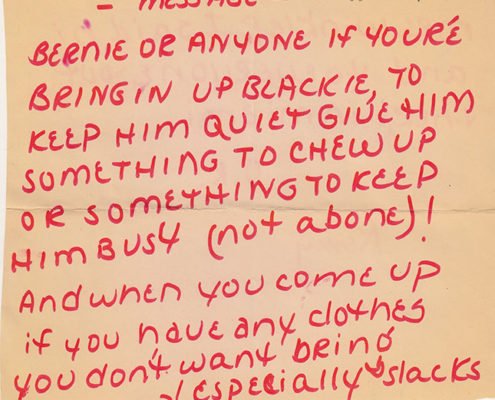 - MESSAGE
BERNIE OR ANYONE if YOU'RE
BRING IN UP BLACKIE, TO
KEEP HIM QUIET GIVE HIM
SOMETHING TO CHEW UP
OR SOMETHING TO KEEP
HIM BUSY (not a bone)!
And when you come up
if you have any clothes
you don't want bring
(especially slacks